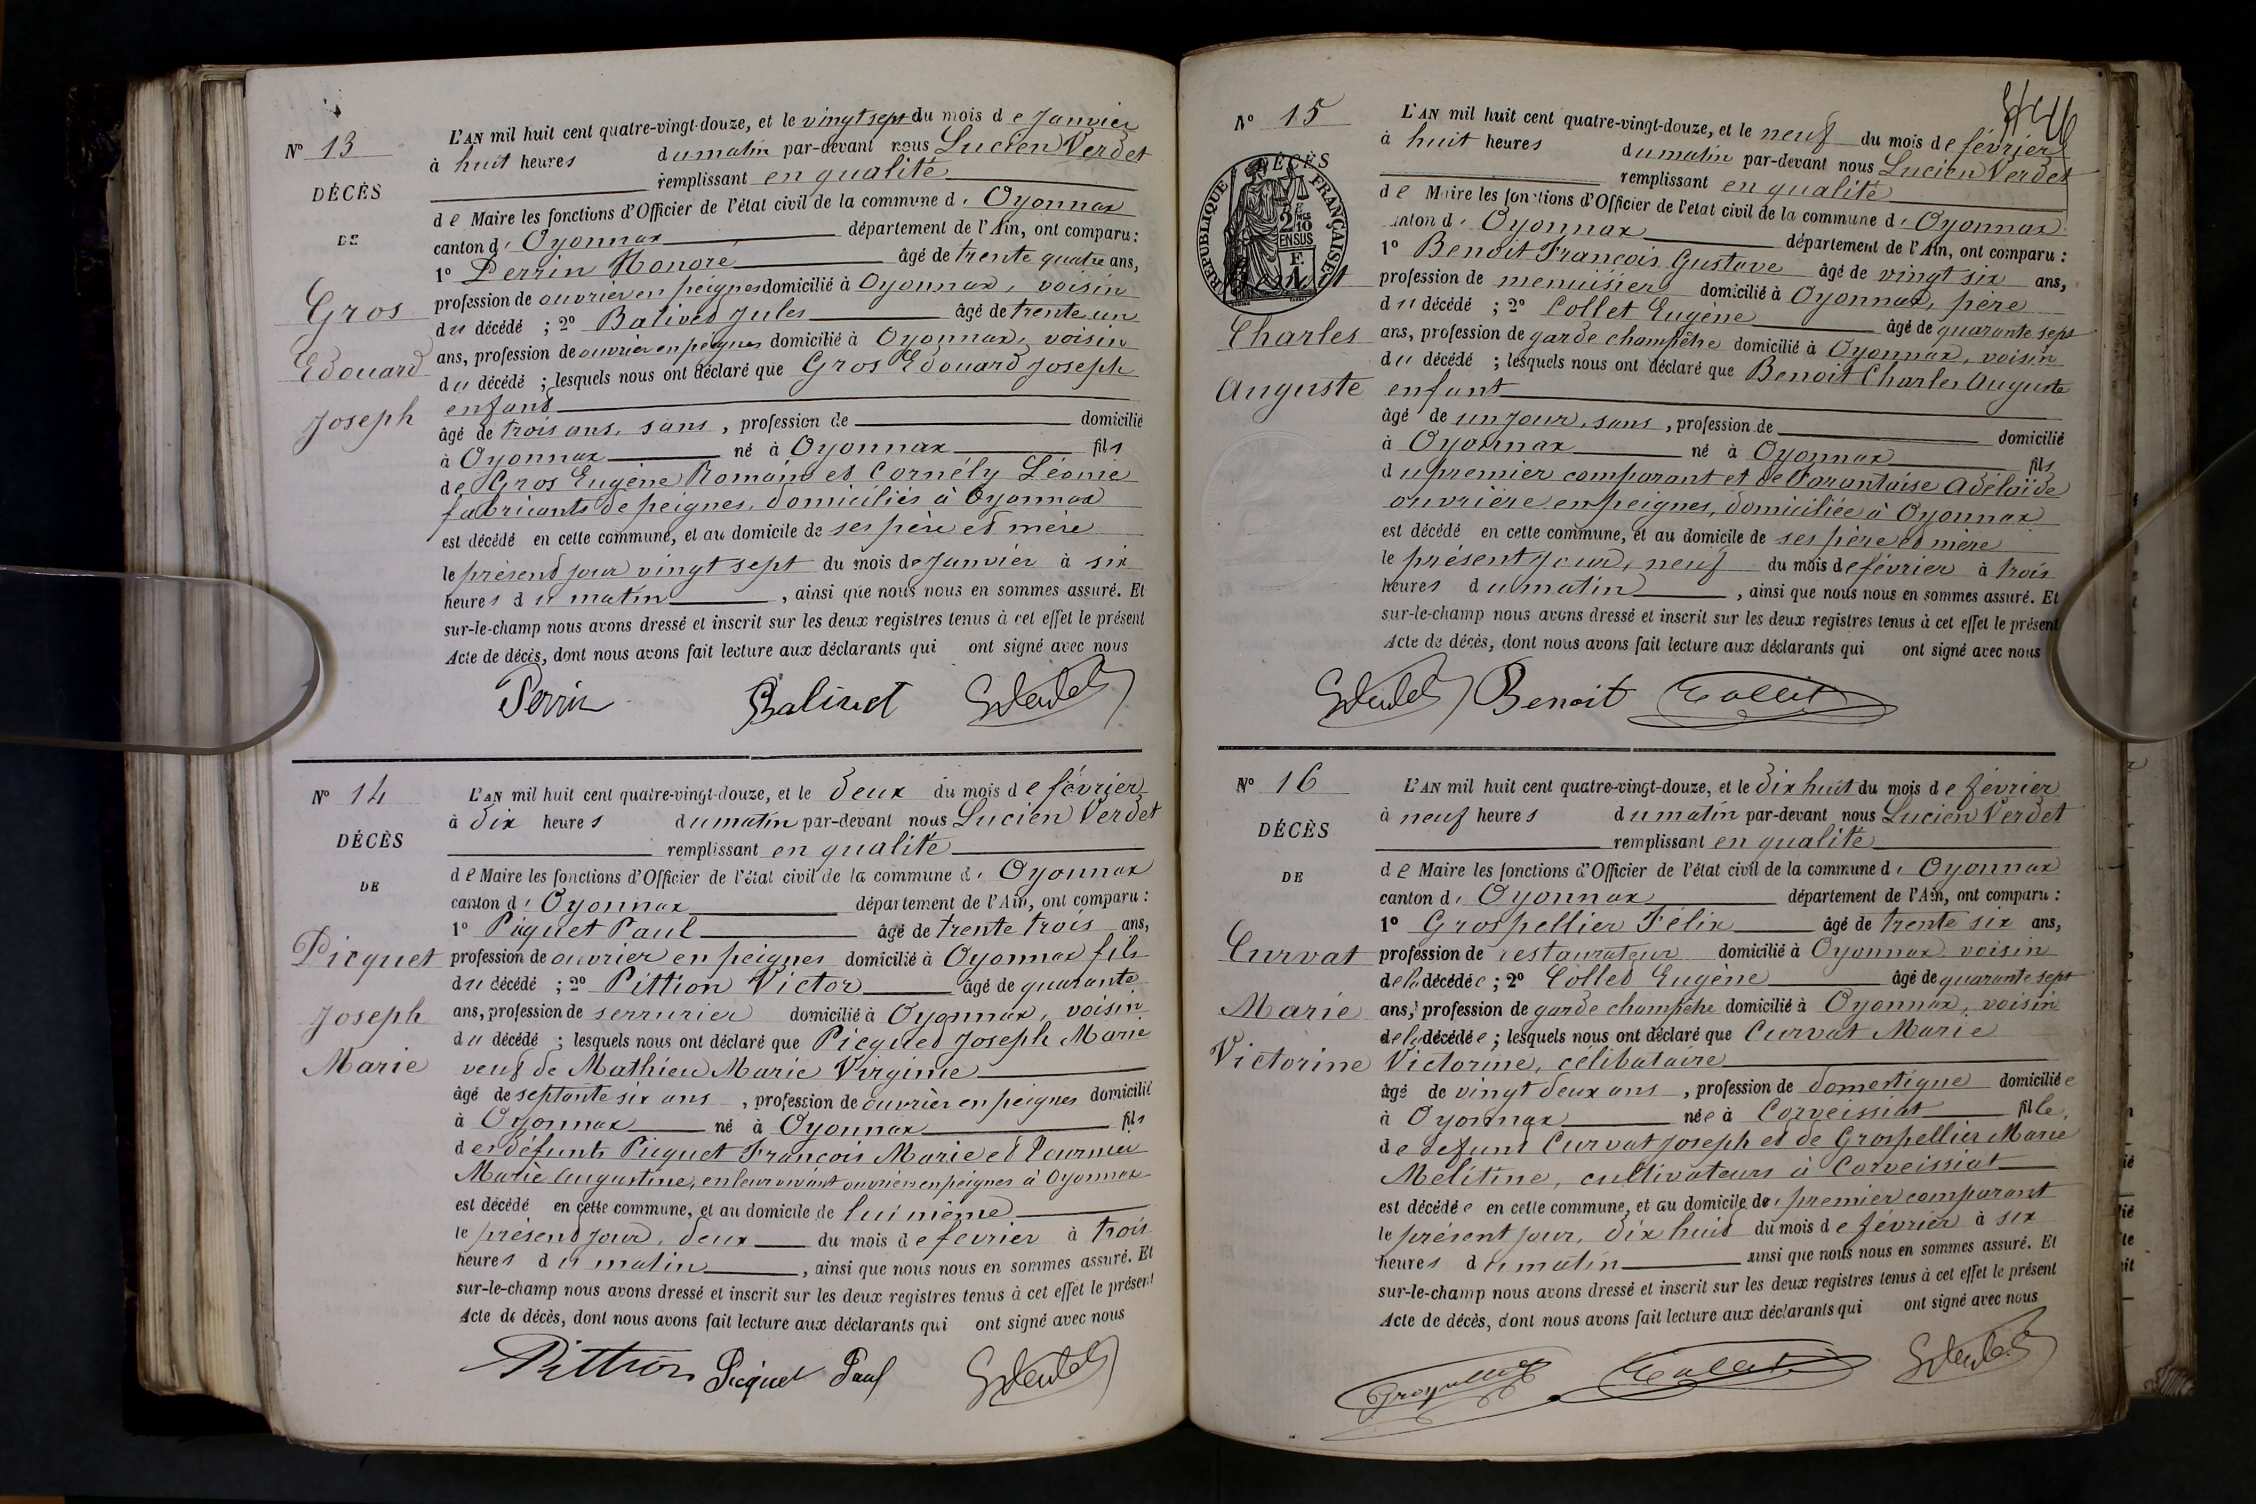 N° 13
DÉCÈS
DE
Gros
Edouard
Joseph
L'AN mil huit cent quatre-vingt-douze, et le vingt sept du mois de Janvier
à huit heures du matin par-devant nous Lucien Verdet
remplissant en qualité
de Maire les fonctions d'Officier de l'état civil de la commune d' Oyonnax
canton d' Oyonnax département de l'Ain, ont comparu :
1° Perrin Honoré âgé de trente quatre ans,
profession de ouvrier en peignes domicilié à Oyonnax, voisin
du décédé ; 2° Balivet Jules âgé de trente un
ans, profession de ouvrier en peignes domicilié à Oyonnax, voisin
du décédé ; lesquels nous ont déclaré que Gros Edouard Joseph
enfant
âgé de trois ans, sans, profession de domicilié
à Oyonnax né à Oyonnax fils
de Gros Eugène Romain et Cornély Léonie
fabricants de peignes, domiciliés à Oyonnax
est décédé en cette commune, et au domicile de ses père et mère
le présent jour vingt sept du mois de Janvier à six
heures du matin, ainsi que nous nous en sommes assuré. Et
sur-le-champ nous avons dressé et inscrit sur les deux registres tenus à cet effet le présent
Acte de décès, dont nous avons fait lecture aux déclarants qui ont signé avec nous
Perrin Balivet
N° 14
DÉCÈS
DE
Picquet
Joseph
Marie
L'AN mil huit cent quatre-vingt-douze, et le deux du mois de février
à dix heures du matin par-devant nous Lucien Verdet
remplissant en qualité
de Maire les fonctions d'Officier de l'état civil de la commune d' Oyonnax
canton d' Oyonnax département de l'Ain, ont comparu :
1° Picquet Paul âgé de trente trois ans,
profession de ouvrier en peignes domicilié à Oyonnax fils
du décédé ; 2° Pittion Victor âgé de quarante
ans, profession de serrurier domicilié à Oyonnax, voisin
du décédé ; lesquels nous ont déclaré que Picquet Joseph Marie
veuf de Mathieu Marie Virginie
âgé de septante six ans, profession de ouvrier en peignes domicilié
à Oyonnax né à Oyonnax fils
des défunts Picquet François Marie et
Marie Augustine, en leur vivant ouvriers en peignes à Oyonnax
est décédé en cette commune, et au domicile de lui même
le présent jour, deux du mois de février à trois
heures du matin, ainsi que nous nous en sommes assuré. Et
sur-le-champ nous avons dressé et inscrit sur les deux registres tenus à cet effet le présent
Acte de décès, dont nous avons fait lecture aux déclarants qui ont signé avec nous
Pittion Picquet Paul
N° 15
DÉCÈS
RÉPUBLIQUE FRANÇAISE
2/10 EN SUS
Charles
Auguste
L'AN mil huit cent quatre-vingt-douze, et le neuf du mois de février
à huit heures du matin par-devant nous Lucien Verdet
remplissant en qualité
de Maire les fonctions d'Officier de l'état civil de la commune d' Oyonnax
canton d' Oyonnax département de l'Ain, ont comparu :
1° Benoit François Gustave âgé de vingt six ans,
profession de menuisier domicilié à Oyonnax, père
du décédé ; 2° Collet Eugène âgé de quarante sept
ans, profession de garde champêtre domicilié à Oyonnax, voisin
du décédé ; lesquels nous ont déclaré que Benoit Charles Auguste
enfant
âgé de un jour, sans, profession de domicilié
à Oyonnax né à Oyonnax fils
du premier comparant et de Tarantaise Adélaïde
ouvrière en peignes, domiciliée à Oyonnax
est décédé en cette commune, et au domicile de ses père et mère
le présent jour, neuf du mois de février à trois
heures du matin, ainsi que nous nous en sommes assuré. Et
sur-le-champ nous avons dressé et inscrit sur les deux registres tenus à cet effet le présent
Acte de décès, dont nous avons fait lecture aux déclarants qui ont signé avec nous
Benoit Collet
N° 16
DÉCÈS
DE
Curvat
Marie
Victorine
L'AN mil huit cent quatre-vingt-douze, et le dix huit du mois de février
à neuf heures du matin par-devant nous Lucien Verdet
remplissant en qualité
de Maire les fonctions d'Officier de l'état civil de la commune d' Oyonnax
canton d' Oyonnax département de l'Ain, ont comparu :
1° Grospellier Félix âgé de trente six ans,
profession de restaurateur domicilié à Oyonnax voisin
de la décédée ; 2° Collet Eugène âgé de quarante sept
ans, profession de garde champêtre domicilié à Oyonnax, voisin
de la décédée ; lesquels nous ont déclaré que Curvat Marie
Victorine, célibataire
âgé de vingt deux ans, profession de domestique domiciliée
à Oyonnax née à Corveissiat fille
de défunt Curvat Joseph et de Grospellier Marie
Mélitine, cultivateurs à Corveissiat
est décédée en cette commune, et au domicile du premier comparant
le présent jour, dix huit du mois de février à six
heures du matin ainsi que nous nous en sommes assuré. Et
sur-le-champ nous avons dressé et inscrit sur les deux registres tenus à cet effet le présent
Acte de décès, dont nous avons fait lecture aux déclarants qui ont signé avec nous
Grospellier Collet